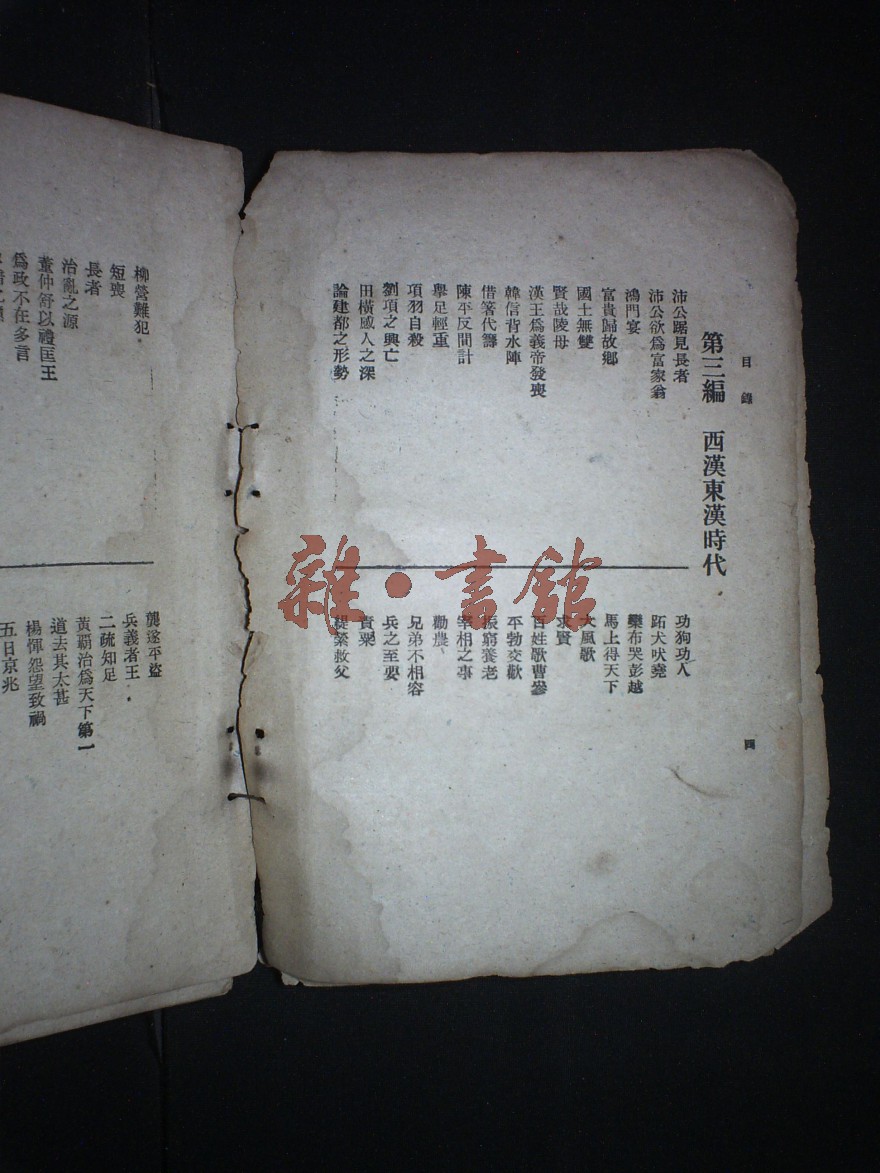 目錄
四
第三編 西漢東漢時代
沛公踞見長者
沛公欲爲富家翁
鴻門宴
富貴歸故鄉
國士無雙
賢哉陵母
漢王爲義帝發喪
韓信背水陣
借箸代籌
陳平反間計
舉足輕重
項羽自殺
劉項之興亡
田橫感人之深
論建都之形勢
功狗功人
跖犬吠堯
欒布哭彭越
馬上得天下
大風歌
求賢
百姓歌曹參
平勃交歡
振窮養老
宰相之事
勸農
兄弟不相容
兵之至要
貴粟
緹縈救父
柳營難犯
短喪
長者
治亂之源
董仲舒以禮匡王
爲政不在多言
龔遂平盜
兵義者王
二疏知足
黃霸治爲天下第一
道去其太甚
楊惲怨望致禍
五日京兆
雜·書館